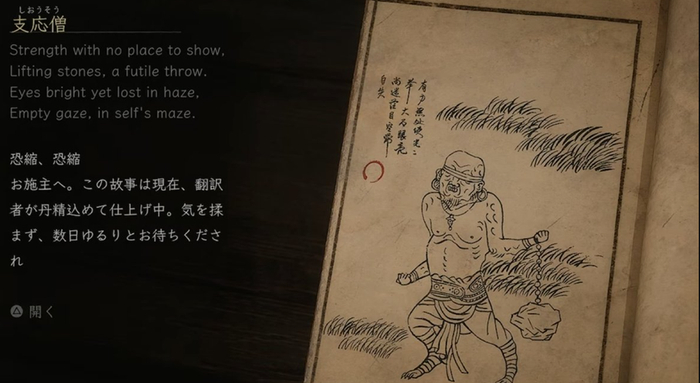 しおうそう
支応僧
Strength with no place to show,
Lifting stones, a futile throw.
Eyes bright yet lost in haze,
Empty gaze, in self's maze.
恐縮、恐縮
お施主へ。この故事は現在、翻訳
者が丹精込めて仕上げ中。気を揉
まず、数日ゆるりとお待ちくださ
れ
開く